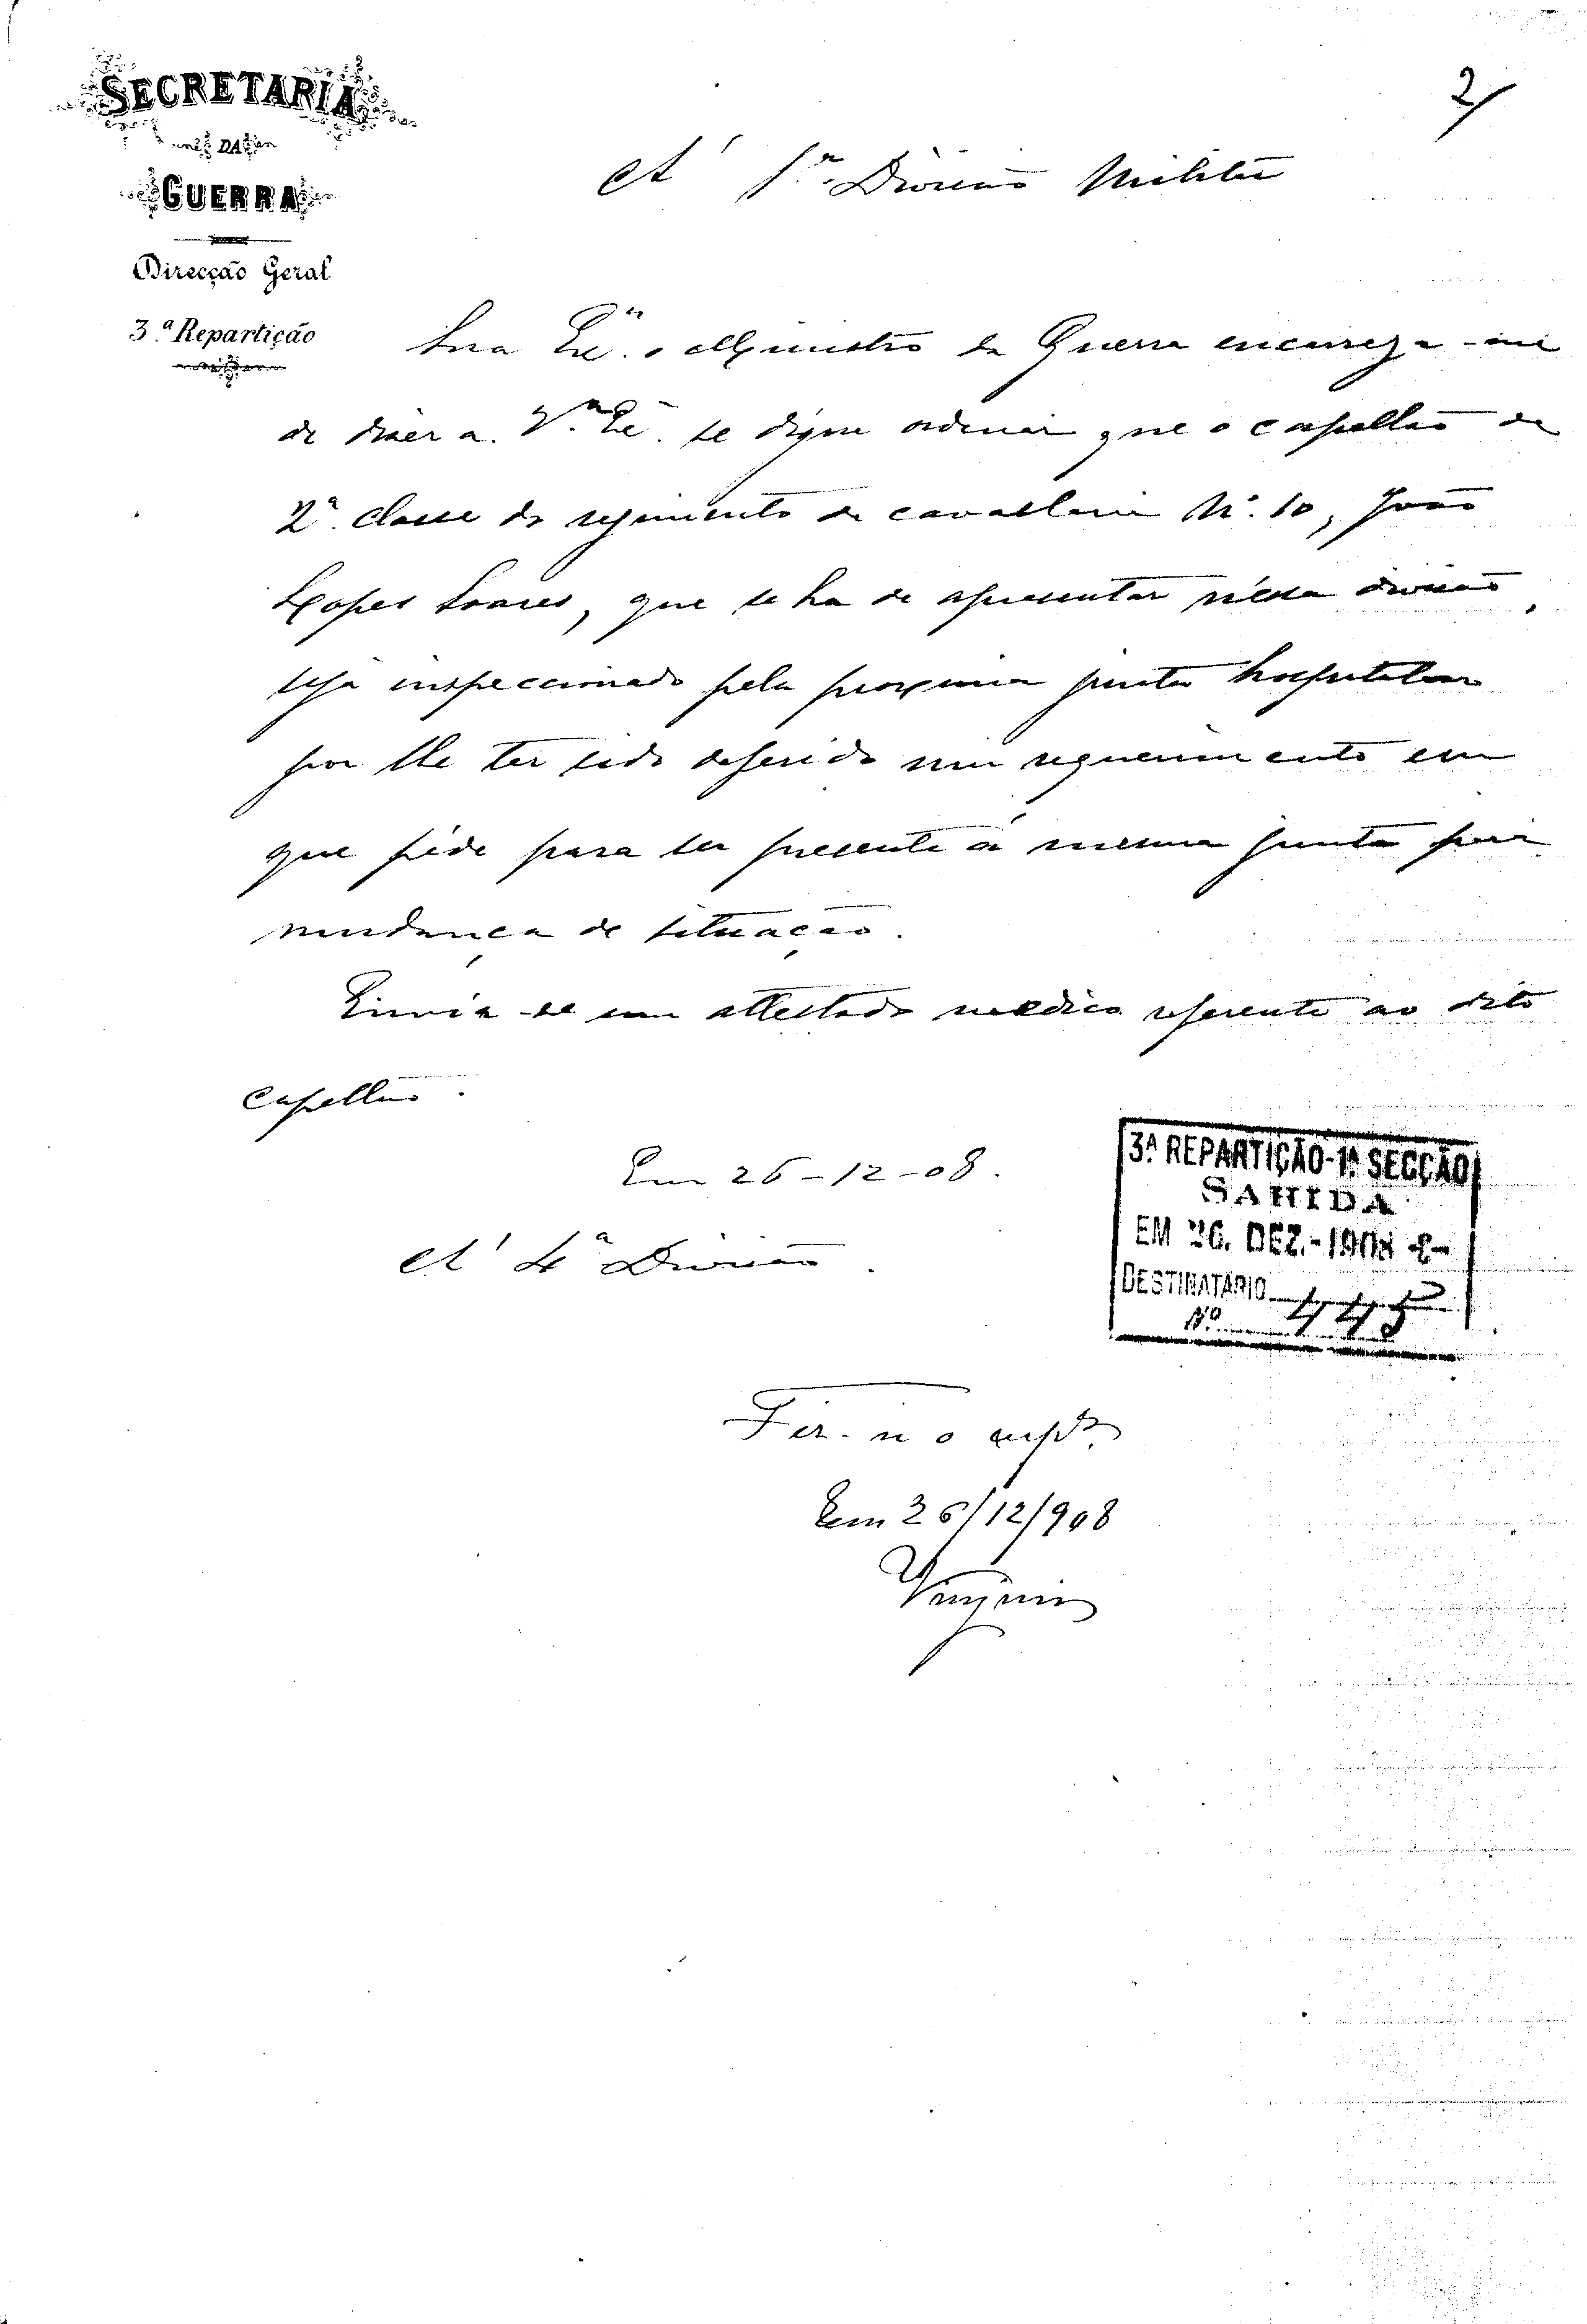 2
SECRETARIA
DA
GUERRA
Direcção Geral
3.ª Repartição
A' 1.ª Divisão Militar
Sua Ex.ª o Ministro da Guerra encarrega-me
de dizer a V.ª Ex.ª se digne ordenar que o capellão de
2.ª classe do regimento de cavallaria N.º 10, João
Lopes Soares, que se ha de apresentar n'essa divisão,
seja inspeccionado pela proxima junta hospitalar
por lhe ter sido deferido um requerimento em
que péde para ser presente á mesma junta para
mudança de situação.
Envia-se um attestado medico referente ao dito
capellão.
Em 26-12-08.
A' 4.ª Divisão.
3.ª REPARTIÇÃO-1.ª SECÇÃO
SAHIDA
EM 26. DEZ.-1908
DESTINATARIO
Nº 445
Fez-se o
Em 26/12/908